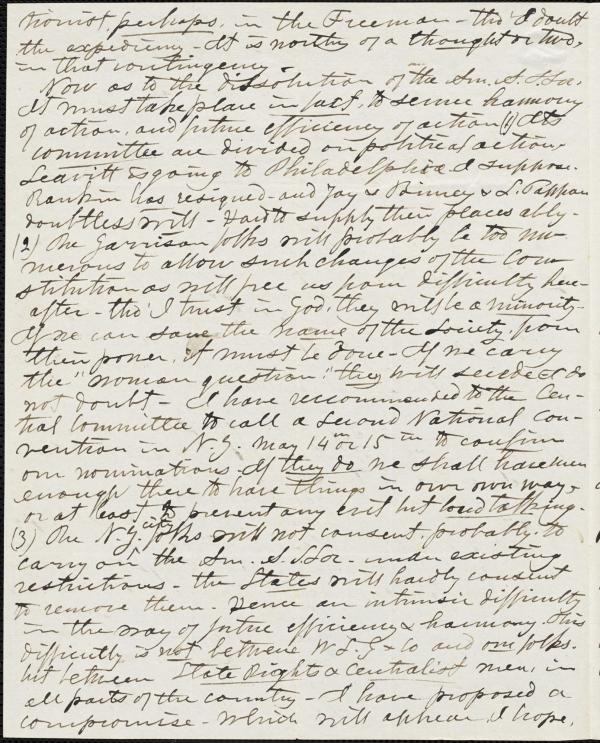 tionist, perhaps, in the Freeman - tho' I doubt
the expediency - It is worthy of a thought or two,
in that contingency.
Now as to the dissolution of the Am. A. S. Soc.
It must take place in fact, to secure harmony
of action, and future efficiency of action (1) Its
committee are divided on political action.
Leavitt is going to Philadelphia I suppose.
Rankin has resigned - and Jay & Birney & L. Tappan
doubtless will - Hard to supply their places ably -
(2) The Garrison folks will probably be too nu-
merous to allow such changes of the Con-
stitution as will free us from difficulty here-
after - tho' I trust in God, they will be a minority -
If we can save the name of the Society, from
their power, it must be done - If we carry
the "woman question" they will secede I do
not doubt - I have reccommended to the Cen-
tral Committee to call a Second National Con-
vention in N. Y. May 14th or 15th to confirm
our nominations. If they do we shall have men
enough there to have things in our own way,
or at least to prevent any evil but loud talking.
(3) The N. Y. city folks will not consent, probably, to
carry on the Am. S. Soc. under existing
restrictions - the States will hardly consent
to remove them. Hence an intrinsic difficulty
in the way of future efficiency & harmony. This
difficulty is not between W L G & Co and our folks.
but between State Rights & Centralist men, in
all parts of the country - I have proposed a
compromise - which will appear, I hope,